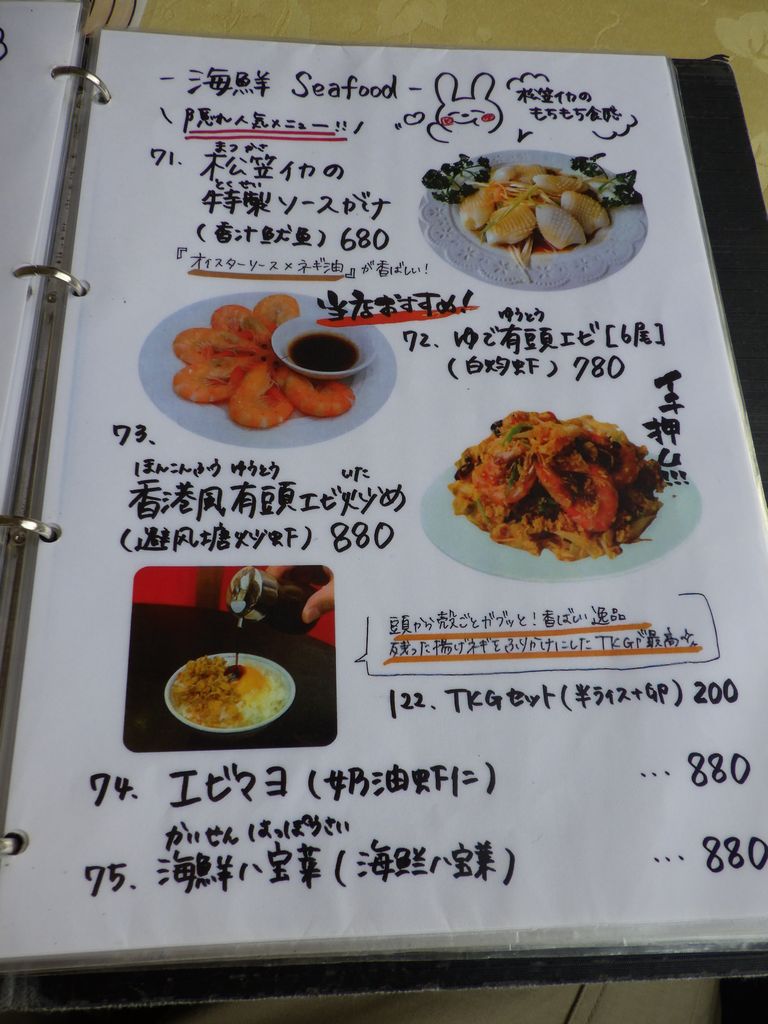 - 海鮮 Seafood -
松笠イカの
もちもち食感
\ 隠れ人気メニュー!! /
71. 松笠イカの
まつかさ
特製ソースがけ
とくせい
(香汁魷魚) 680
『オイスターソース×ネギ油』が香ばしい!
当店おすすめ!
72. ゆで有頭エビ[6尾]
ゆうとう
(白灼虾) 780
イチ押し!!!
73.
ほんこんふう ゆうとう いた
香港風有頭エビ炒め
(避风塘炒虾) 880
頭から殻ごとガブッと!香ばしい逸品
残った揚げネギをふりかけにしたTKGが最高
122. TKGセット(半ライス+GP) 200
74. エビマヨ (奶油虾仁) ... 880
かいせん はっぽうさい
75. 海鮮八宝菜 (海鲜八宝菜) ... 880